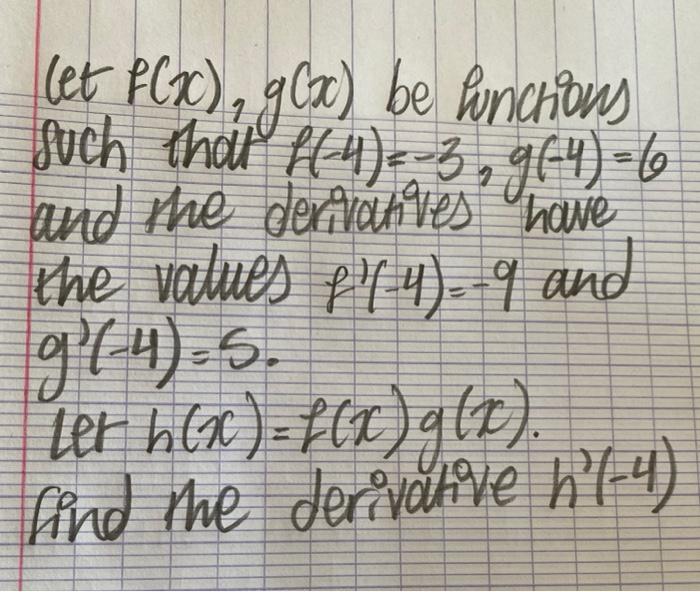 Let f(x), g(x) be functions
such that f(-4)=-3, g(-4)=6
and the derivatives have
the values f'(-4)=-9 and
g'(-4)=5.
Let h(x)=f(x)g(x).
find the derivative h'(-4)